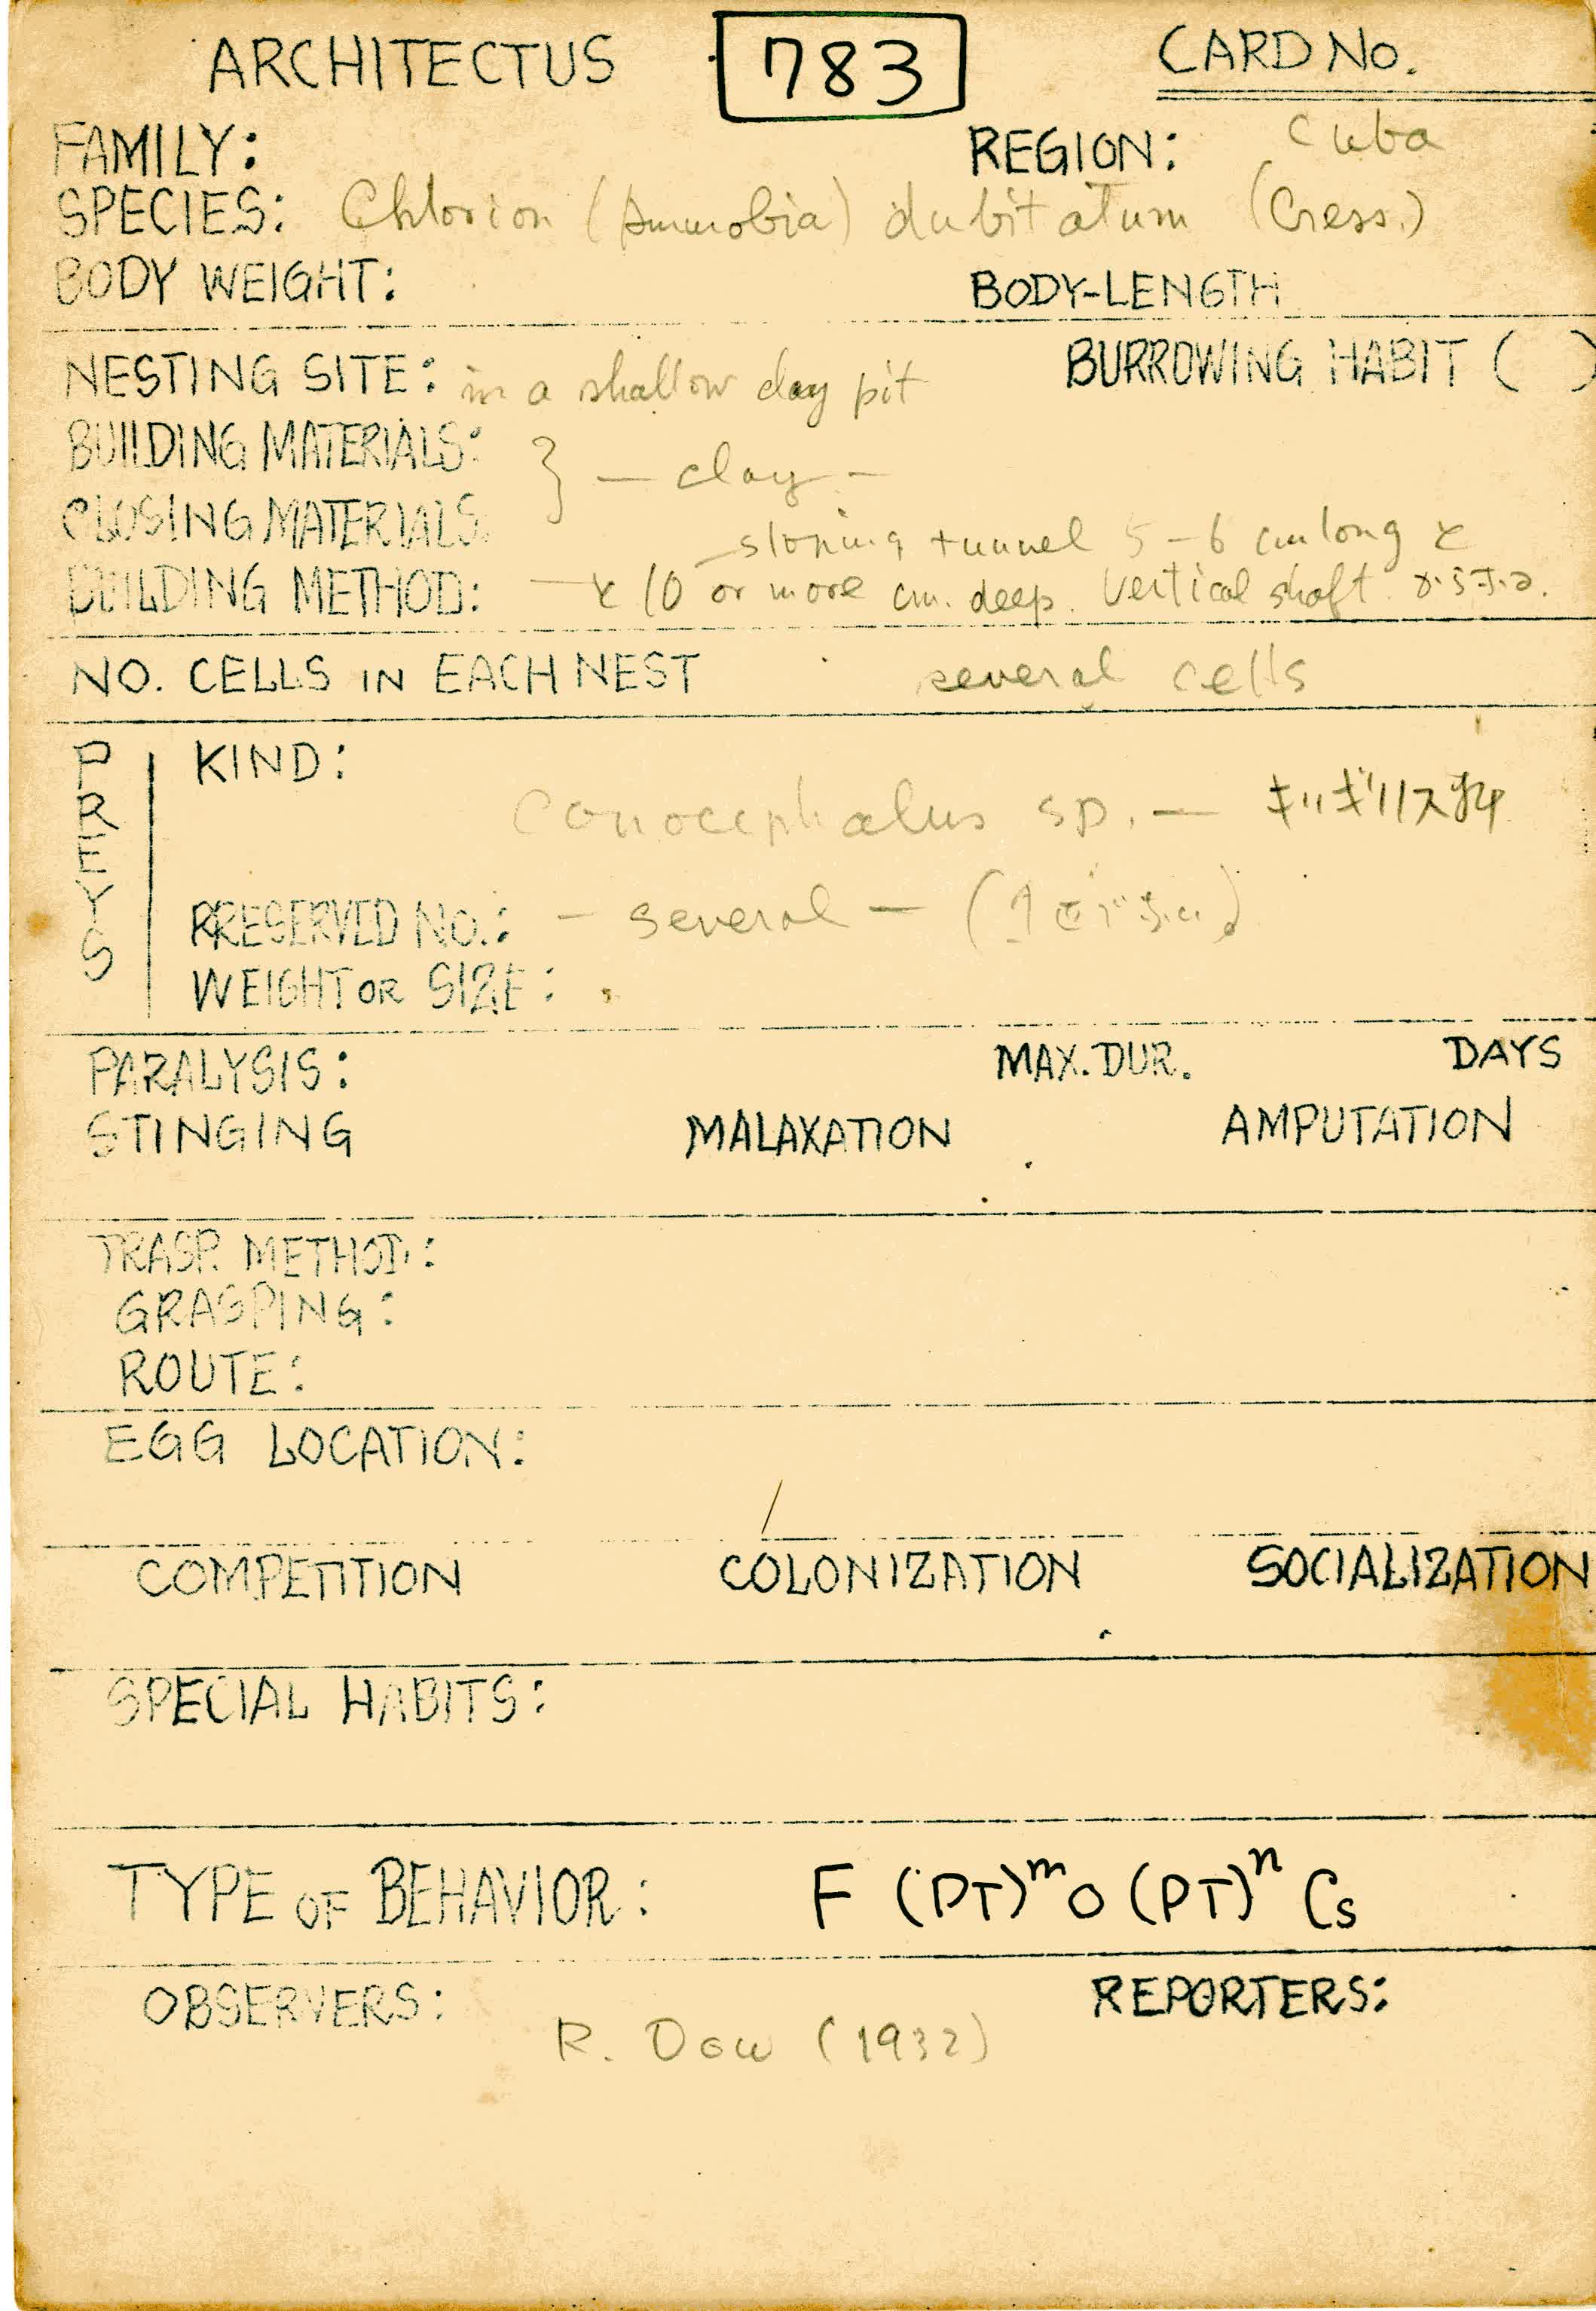 ARCHITECTUS 783 CARD No.
FAMILY: REGION: Cuba
SPECIES: Chlorion (Ammobia) dubitatum (Cress.)
BODY WEIGHT: BODY-LENGTH
NESTING SITE: in a shallow clay pit BURROWING HABIT ( )
BUILDING MATERIALS: } — clay —
CLOSING MATERIALS:
sloping tunnel 5-6 cm long と
BUILDING METHOD: — と 10 or more cm. deep. vertical shaft
NO. CELLS IN EACH NEST several cells
PREYS
KIND:
Conocephalus sp. — キリギリス科
PRESERVED NO.: — several —
WEIGHT OR SIZE:
PARALYSIS: MAX. DUR. DAYS
STINGING MALAXATION AMPUTATION
TRASP. METHOD:
GRASPING:
ROUTE:
EGG LOCATION:
COMPETITION COLONIZATION SOCIALIZATION
SPECIAL HABITS:
TYPE OF BEHAVIOR: F (PT)ᵐ O (PT)ⁿ Cs
OBSERVERS: REPORTERS:
R. Dow (1932)